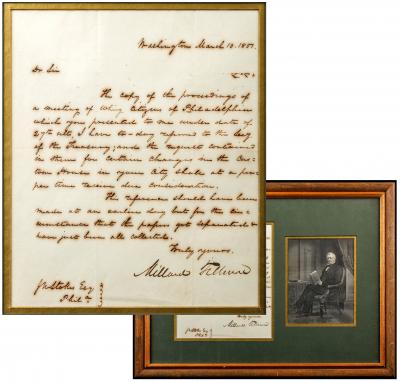 Washington March 13. 1851.
Dr Sir
The copy of the proceedings of
a meeting of Whig citizens of Philadelphia
which you presented to me under date of
27th ulto, I have to-day referred to the Secy
of the Treasury; and the request contained
in them for certain changes in the Cus-
tom House in your City shall at a pro-
per time receive due consideration.
This reference should have been
made at an earlier day but for the cir-
cumstances that the papers got separated &
have just been all collected.
Truly yours,
Millard Fillmore
J W Stokes Esq
Phila
Truly yours,
Millard Fillmore